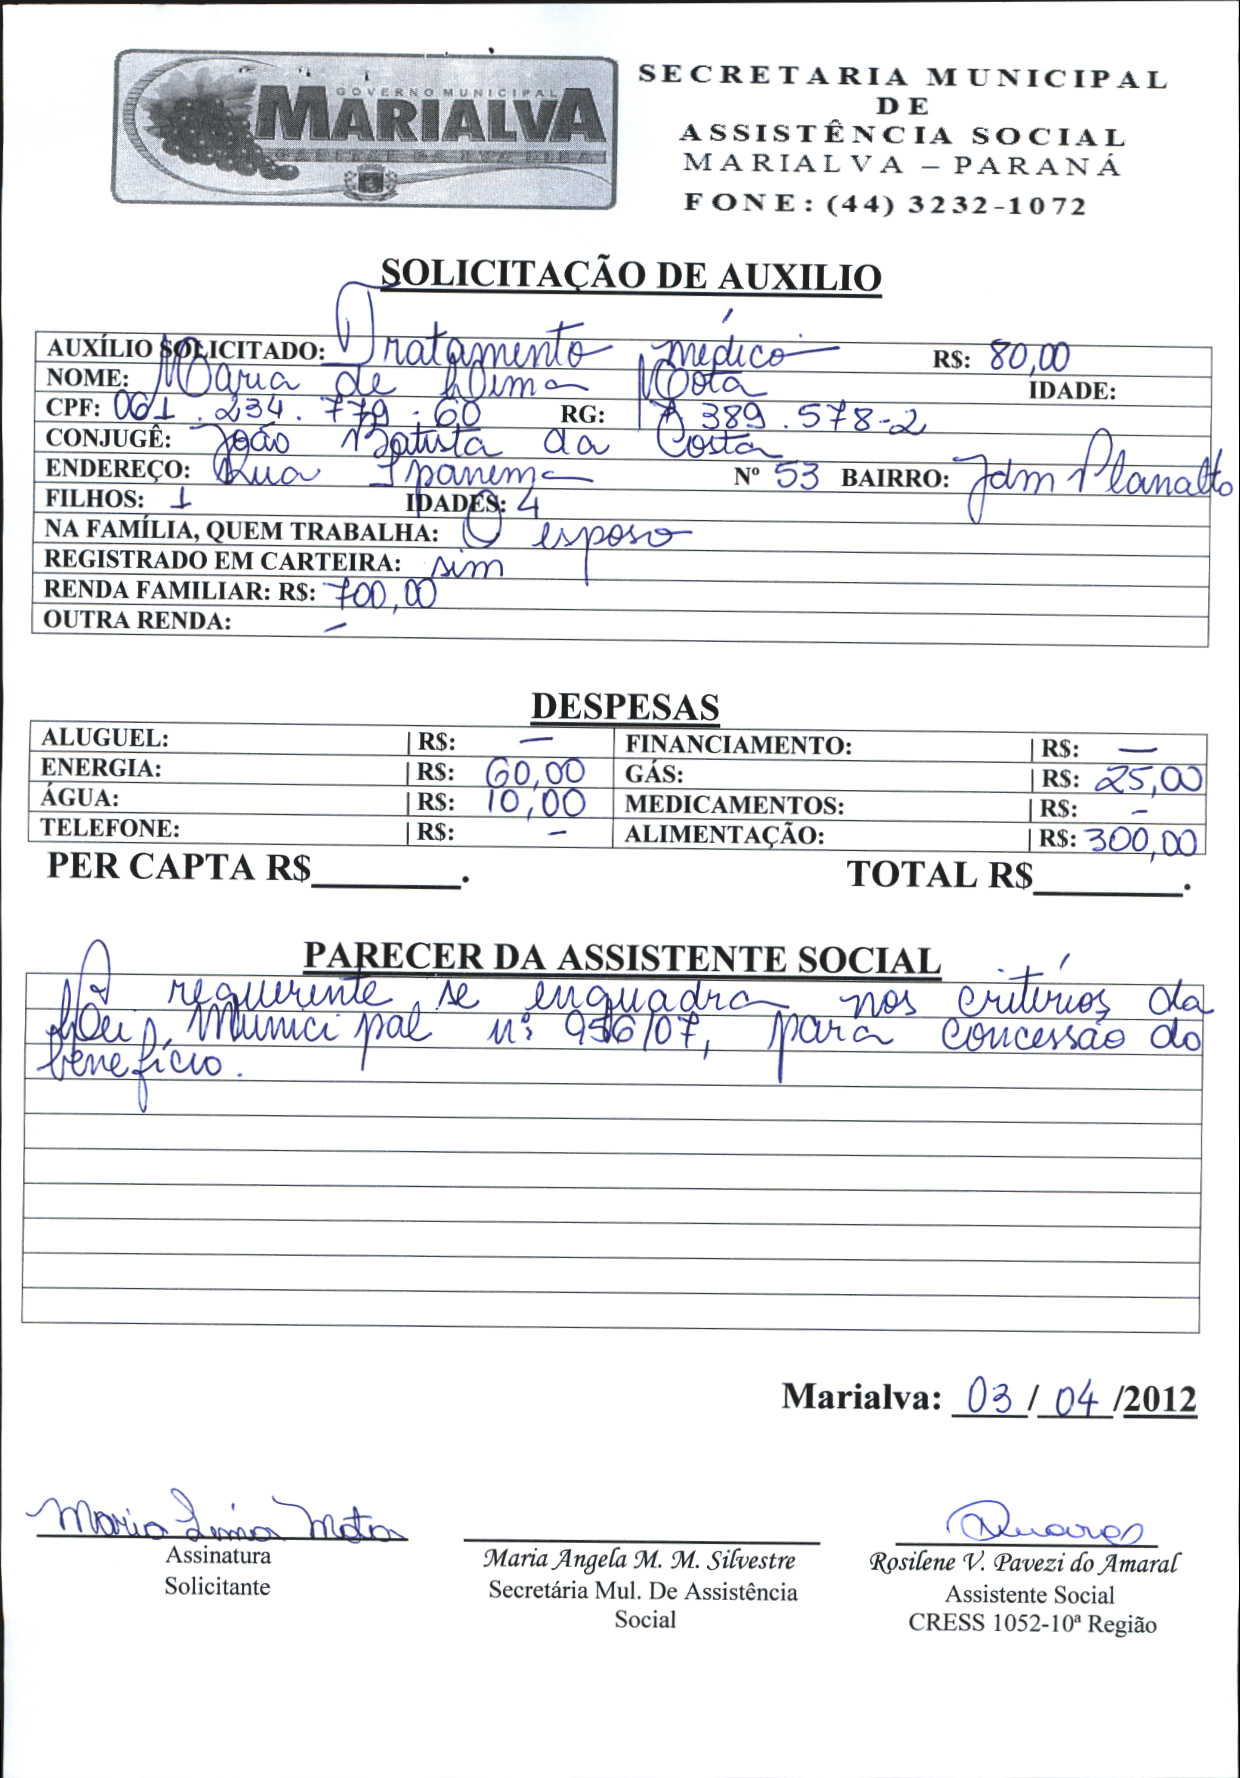 GOVERNO MUNICIPAL
MARIALVA
SECRETARIA MUNICIPAL
DE
ASSISTÊNCIA SOCIAL
MARIALVA – PARANÁ
FONE: (44) 3232-1072
SOLICITAÇÃO DE AUXILIO
AUXÍLIO SOLICITADO: Tratamento médico R$: 80,00
NOME: Maria de Lima Mota IDADE:
CPF: 061.234.779-60 RG: 389.578-2
CONJUGÊ: João Batista da Costa
ENDEREÇO: Rua Ipanema Nº 53 BAIRRO: Jdm Planalto
FILHOS: 1 IDADES: 4
NA FAMÍLIA, QUEM TRABALHA: O esposo
REGISTRADO EM CARTEIRA: sim
RENDA FAMILIAR: R$: 700,00
OUTRA RENDA: -
DESPESAS
ALUGUEL: | R$: — FINANCIAMENTO: | R$: —
ENERGIA: | R$: 60,00 GÁS: | R$: 25,00
ÁGUA: | R$: 10,00 MEDICAMENTOS: | R$: -
TELEFONE: | R$: - ALIMENTAÇÃO: | R$: 300,00
PER CAPTA R$________. TOTAL R$________.
PARECER DA ASSISTENTE SOCIAL
A requerente se enquadra nos critérios da
Lei Municipal nº 956/07, para concessão do
benefício.
Marialva: 03/04/2012
Maria Lima Mota
Assinatura
Solicitante
Maria Angela M. M. Silvestre
Secretária Mul. De Assistência
Social
Rosilene V. Pavezi do Amaral
Assistente Social
CRESS 1052-10ª Região